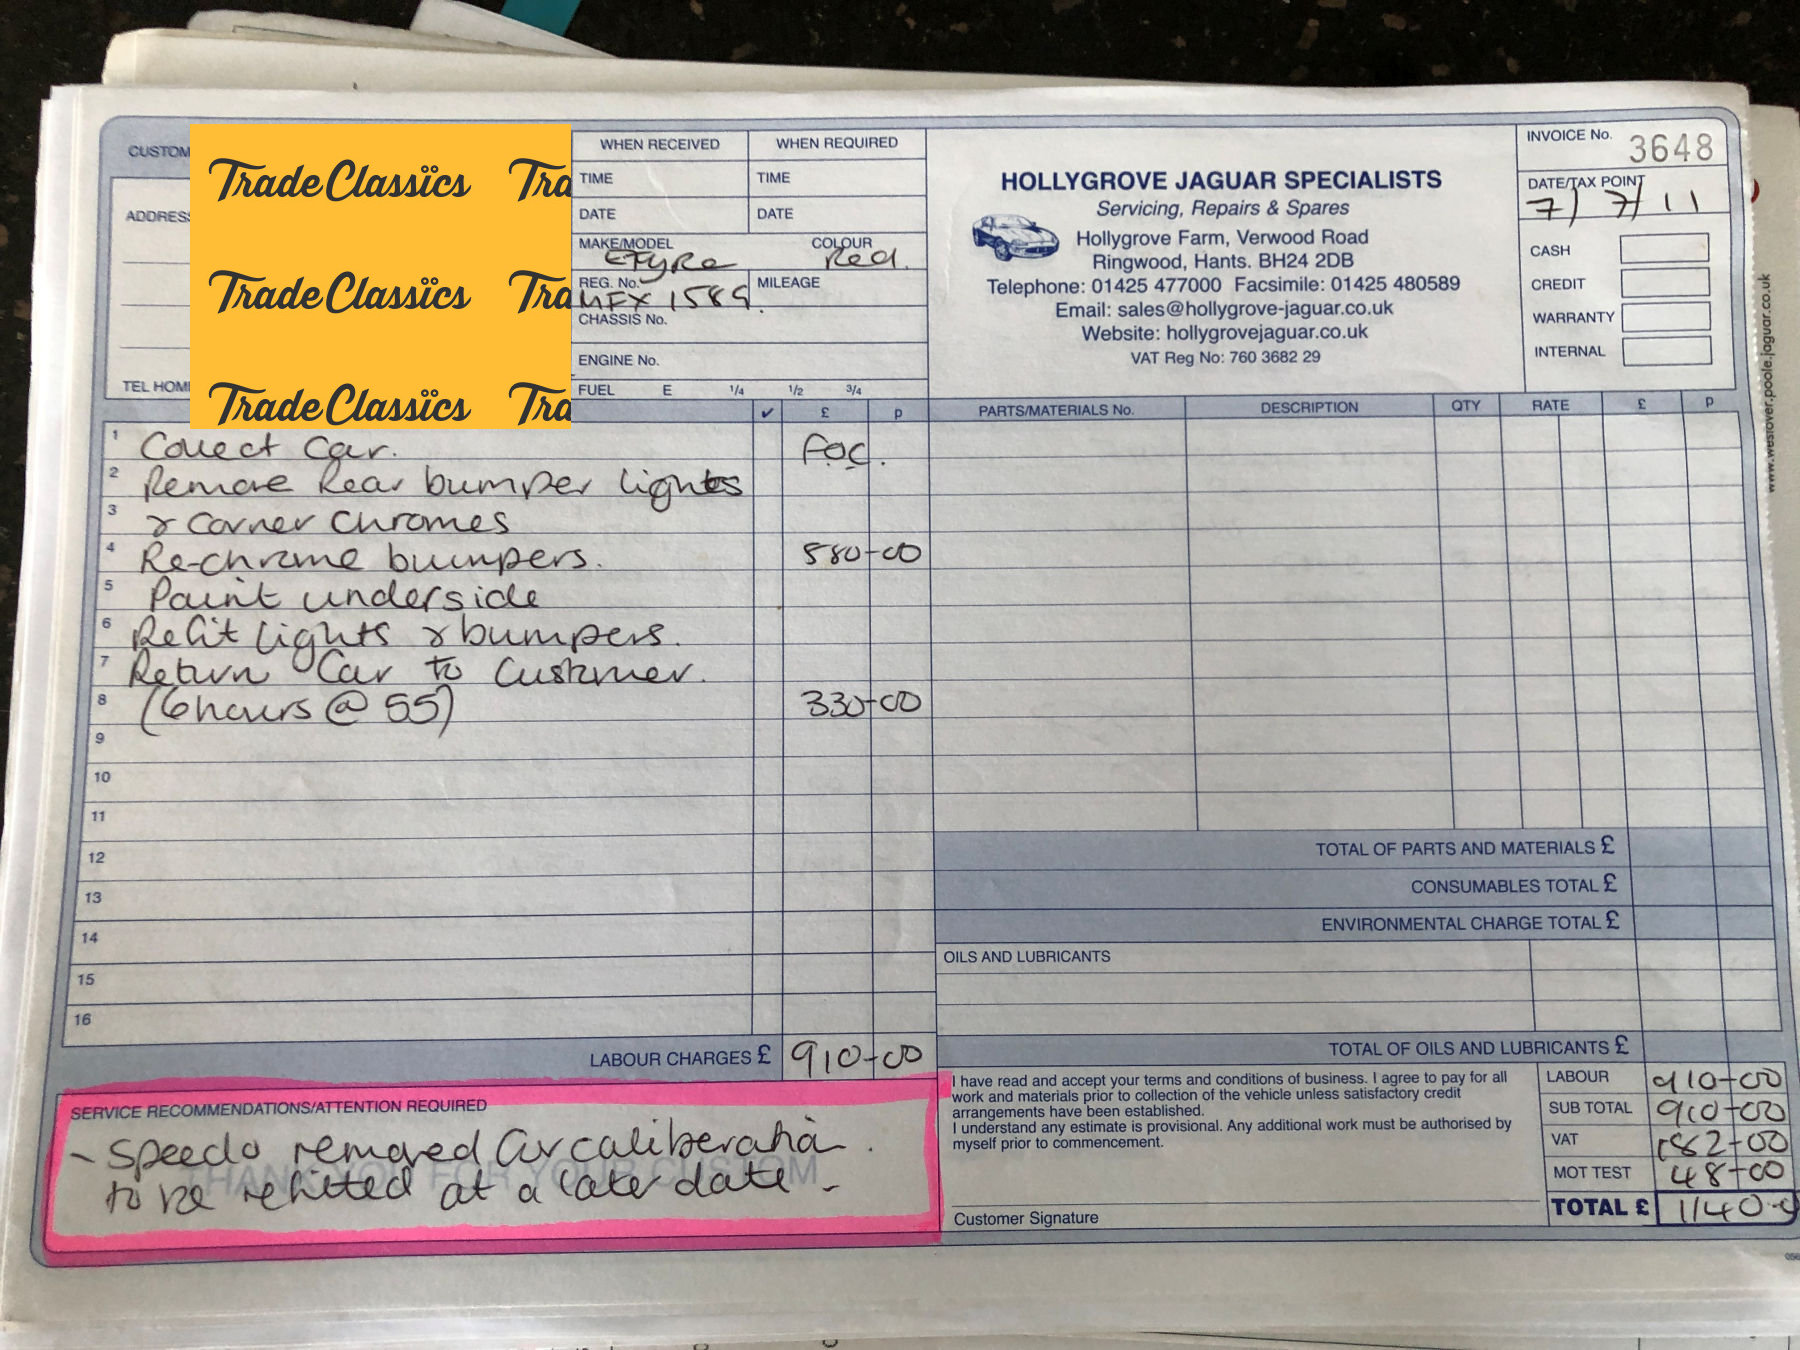 CUSTOM
ADDRES
TEL HOM
Trade Classics Tra
Trade Classics Tra
Trade Classics Tra
WHEN RECEIVED WHEN REQUIRED
TIME TIME
DATE DATE
MAKE/MODEL COLOUR
EType Red.
REG. No. MILEAGE
MFX 158G.
CHASSIS No.
ENGINE No.
FUEL E 1/4 1/2 3/4
HOLLYGROVE JAGUAR SPECIALISTS
Servicing, Repairs & Spares
Hollygrove Farm, Verwood Road
Ringwood, Hants. BH24 2DB
Telephone: 01425 477000 Facsimile: 01425 480589
Email: sales@hollygrove-jaguar.co.uk
Website: hollygrovejaguar.co.uk
VAT Reg No: 760 3682 29
INVOICE No. 3648
DATE/TAX POINT
7/7/11
CASH
CREDIT
WARRANTY
INTERNAL
www.westover.poole.jaguar.co.uk
✓ £ p
1 Collect Car. FOC.
2 Remove Rear bumper lights
3 & Corner Chromes
4 Re-chrome bumpers. 580-00
5 Paint underside
6 Refit lights & bumpers.
7 Return Car to Customer.
8 (6 hours @ 55) 330-00
9
10
11
12
13
14
15
16
LABOUR CHARGES £ 910-00
PARTS/MATERIALS No. DESCRIPTION QTY RATE £ p
TOTAL OF PARTS AND MATERIALS £
CONSUMABLES TOTAL £
ENVIRONMENTAL CHARGE TOTAL £
OILS AND LUBRICANTS
TOTAL OF OILS AND LUBRICANTS £
SERVICE RECOMMENDATIONS/ATTENTION REQUIRED
- Speedo removed for caliberation.
to be refitted at a later date -
THANK YOU FOR YOUR CUSTOM
I have read and accept your terms and conditions of business. I agree to pay for all
work and materials prior to collection of the vehicle unless satisfactory credit
arrangements have been established.
I understand any estimate is provisional. Any additional work must be authorised by
myself prior to commencement.
Customer Signature
LABOUR 910-00
SUB TOTAL 910-00
VAT 182-00
MOT TEST 48-00
TOTAL £ 1140-0